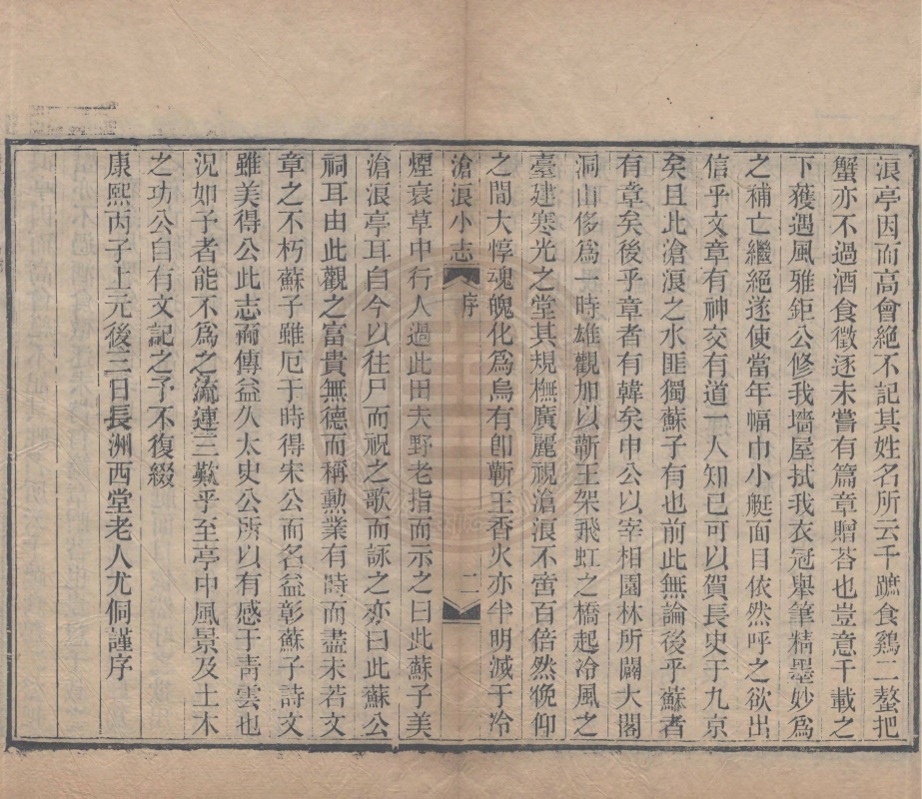 浪亭因而高會絶不記其姓名所云千蹠食鷄二螯把
蟹亦不過酒食徵逐未嘗有篇章贈荅也豈意千載之
下獲遇風雅鉅公修我墻屋拭我衣冠舉筆精墨妙爲
之補亡繼絕遂使當年幅巾小艇面目依然呼之欲出
信乎文章有神交有道一人知已可以賀長史于九京
矣且此滄浪之水匪獨蘇子有也前此無論後乎蘇者
有章矣後乎章者有韓矣申公以宰相園林所闢大閣
洞山侈爲一時雄觀加以蘄王架飛虹之橋起冷風之
臺建寒光之堂其規橅廣麗視滄浪不啻百倍然俛仰
之間大惇魂魄化爲烏有卽蘄王香火亦半明滅于冷
滄浪小志 序 二
煙衰草中行人過此田夫野老指而示之曰此蘇子美
滄浪亭耳自今以往尸而祝之歌而詠之亦曰此蘇公
祠耳由此觀之富貴無德而稱勲業有時而盡未若文
章之不朽蘇子雖厄于時得宋公而名益彰蘇子詩文
雖美得公此志而傳益久太史公所以有感于靑雲也
況如予者能不爲之流連三歎乎至亭中風景及土木
之功公自有文記之予不復綴
康熙丙子上元後三日長洲西堂老人尤侗謹序